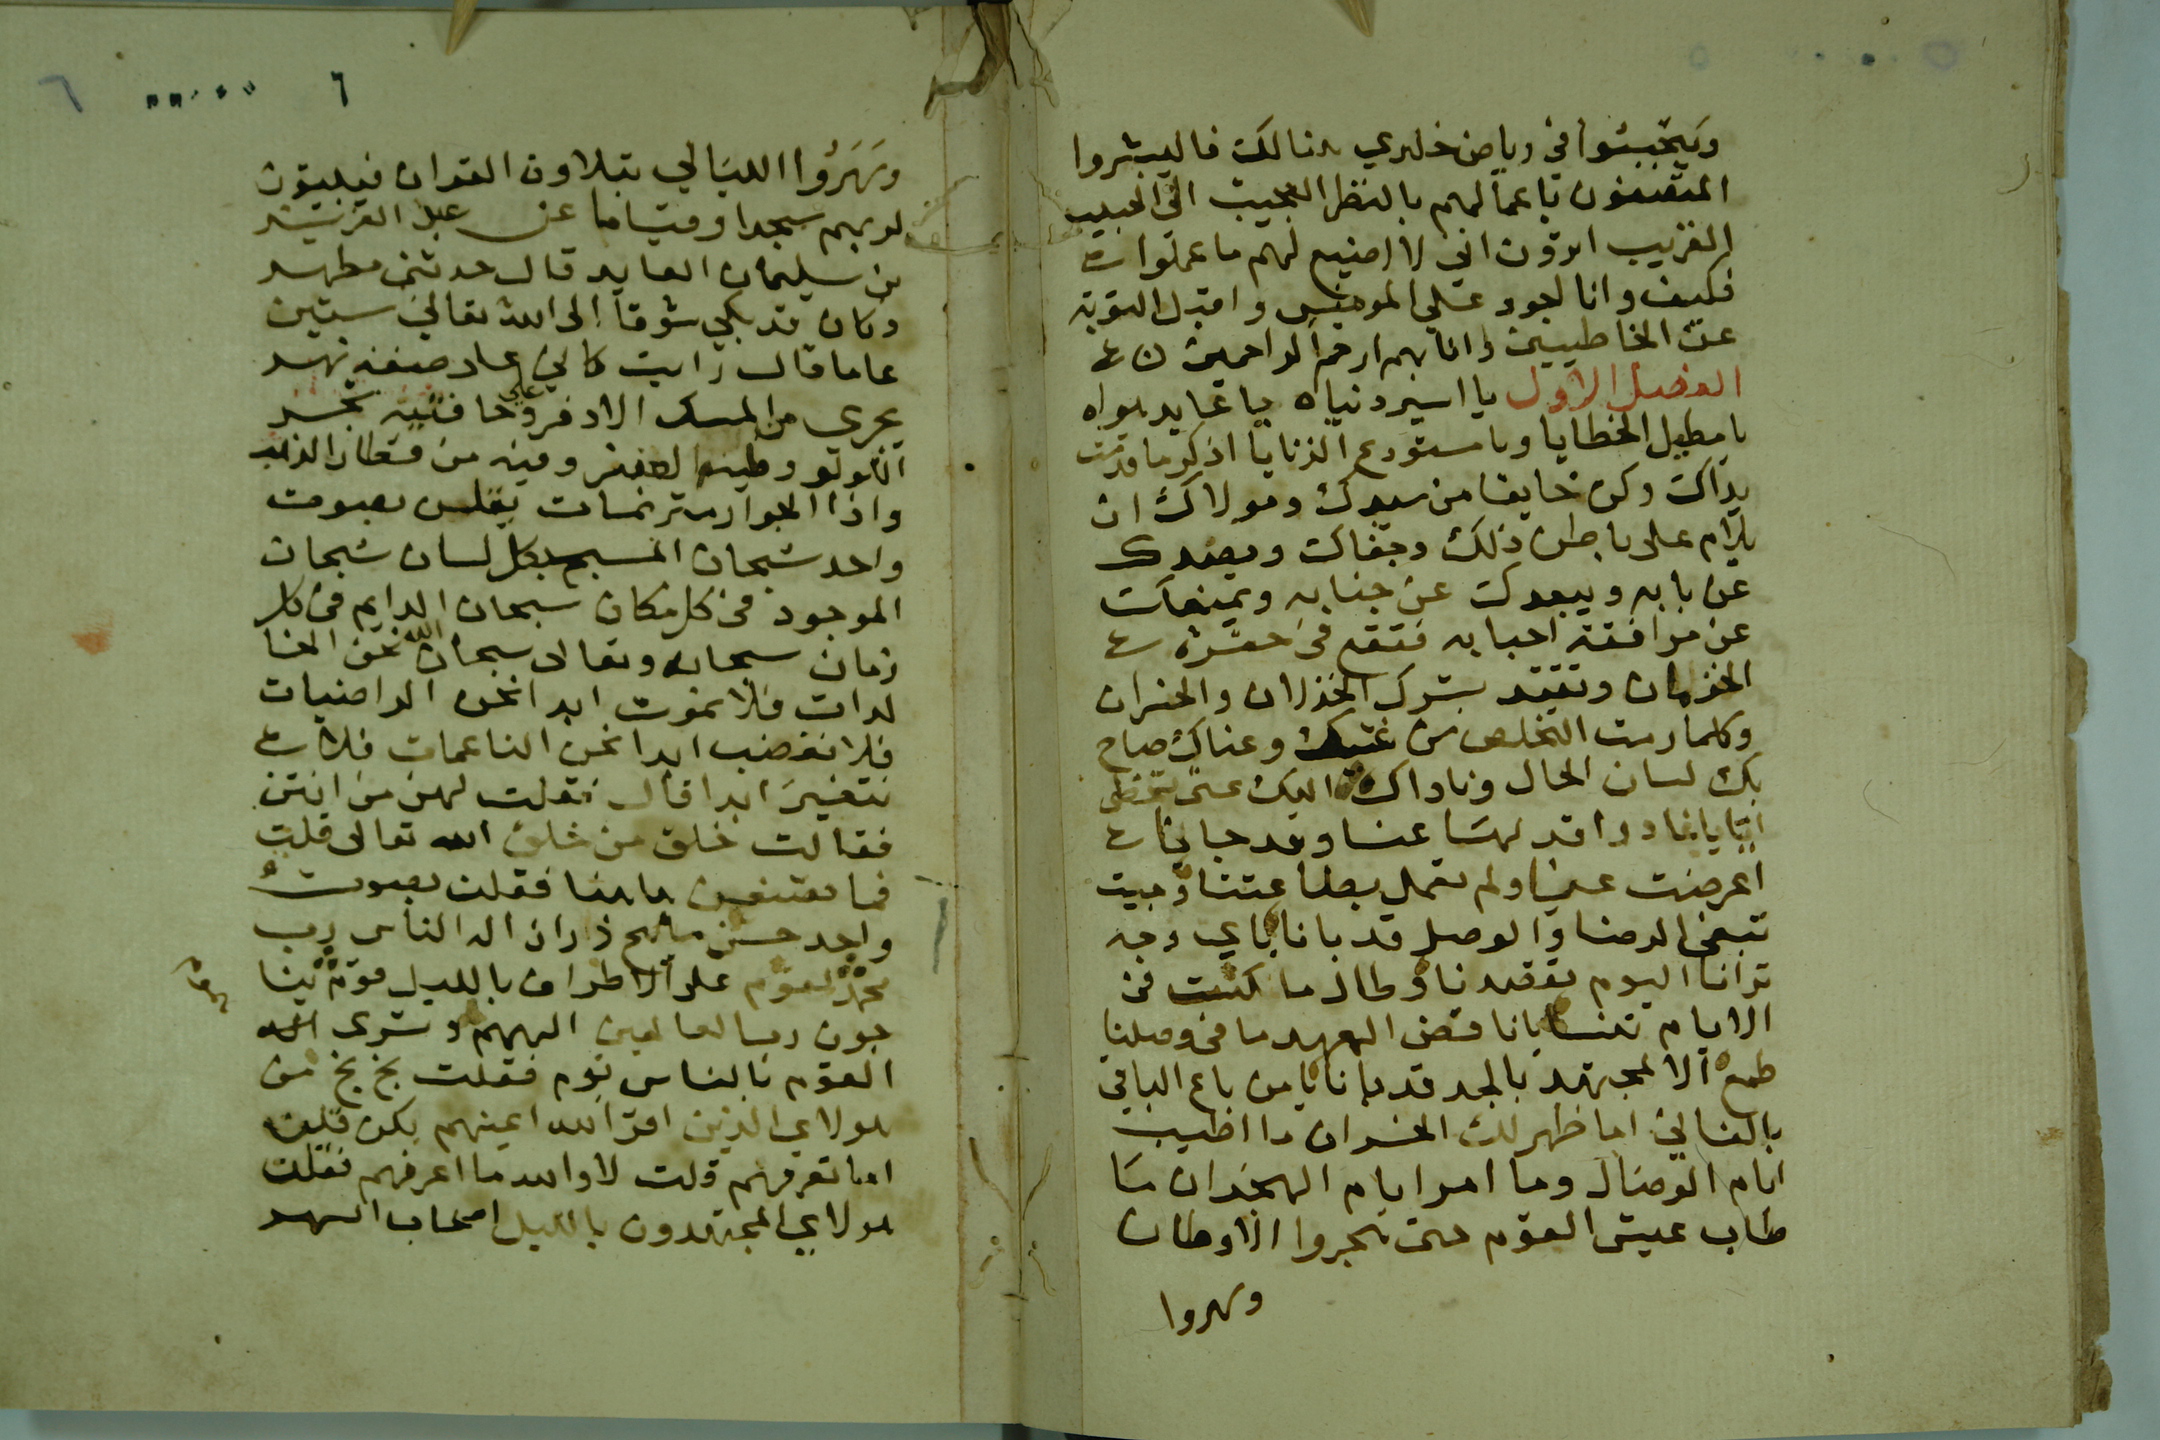 ويجيبوا في رياض خلدي هنالك فاليبشروا
المتقنفون باعمالهم بالنظر العجيب الى الحبيب
القريب اترون اني لا اضيع لهم ما عملوا
فكيف وانا اجود على المومنين واقبل التوبة
عن الخاطيين وانا بهم ارحم الراحمين
الفصل الاول يا اسير دنياه يا عابد هواه
يا مطيل الخطايا ويا مستودع الزنايا اذكر ما قدمت
يداك وكن خايفا من سيدك ومولاك ان
يلام على باطن ذلك وجفاك ويصدك
عن بابه ويبعدك عن جنابه ويمنعك
عن مرافقة احبابه فتقع في حفرة
الخذلان وتقيد بشرك الخذلان والخسران
وكلما رمت التخلص من غيك وعناك صاح
بك لسان الحال وناداك اليك عنى تحظى
ايا يا غادرا قد لهَا عنا وقد جانا
اعرضت عنا ولم تعمل بطاعتنا وجيت
تبغى الرضا والوصل قد بانا باي وجه
ترانا اليوم تقصدنا وطال ما كنت في
الايام تنسانا يا ناقض العهد ما في وصلنا
طمع الا لمجتهد بالجد قد بانا يا من باع الباقي
بالفاني اما ظهر لك الخسران ما اطيب
ايام الوصال وما امر ايام الهجران ما
طاب عيش القوم حتى هجروا الاوطان
وسهروا
٦
وسَهَرُوا الليَالي بتلاوت القران فيبيتون
لربهم سجدا وقياما عن عبد العزيز
بن سليمان العابد قال حدثني مطهر
وكان قد بكي شوقا إلى الله تعالى ستين
عاما قال رايت كاني على ضفة نهر
يجري من المسك الاذفر وعلى حافتيه شجر
اللولو وطينه العنبر وفيه من قضبان الذهب
واذا الجوار مترنمات يقلن بصوت
واحد سُبحان المسبح بكل لسان سُبحان
الموجود في كل مكان سبحان الدايم في كل
زمان سبحانه وتعالى سبحان الله نحن الخا
لدات فلا نموت ابدا نحن الراضيات
فلا نغضب ابدا نحن الناعمات فلا
نتغيرَ ابدا قال فقلت لهن من انتن
فقالت خلق من خلق الله تعالى قلت
فما تصنعين هاهنا فقلن بصوت
واحد حسن مليح ذرانا اله الناس رب
محمد لقوم على الاطراف بالليل قوم ينا
جون رب العالمين الههم وتسرى
القوم والناس نوم فقلت بخ بخ من
هولاي الذين اقر الله اعينهم بكن فقلن
اما تعرفهم قلت لا والله ما اعرفهم فقلن
هولاي المجتهدون بالليل اصحاب السهر